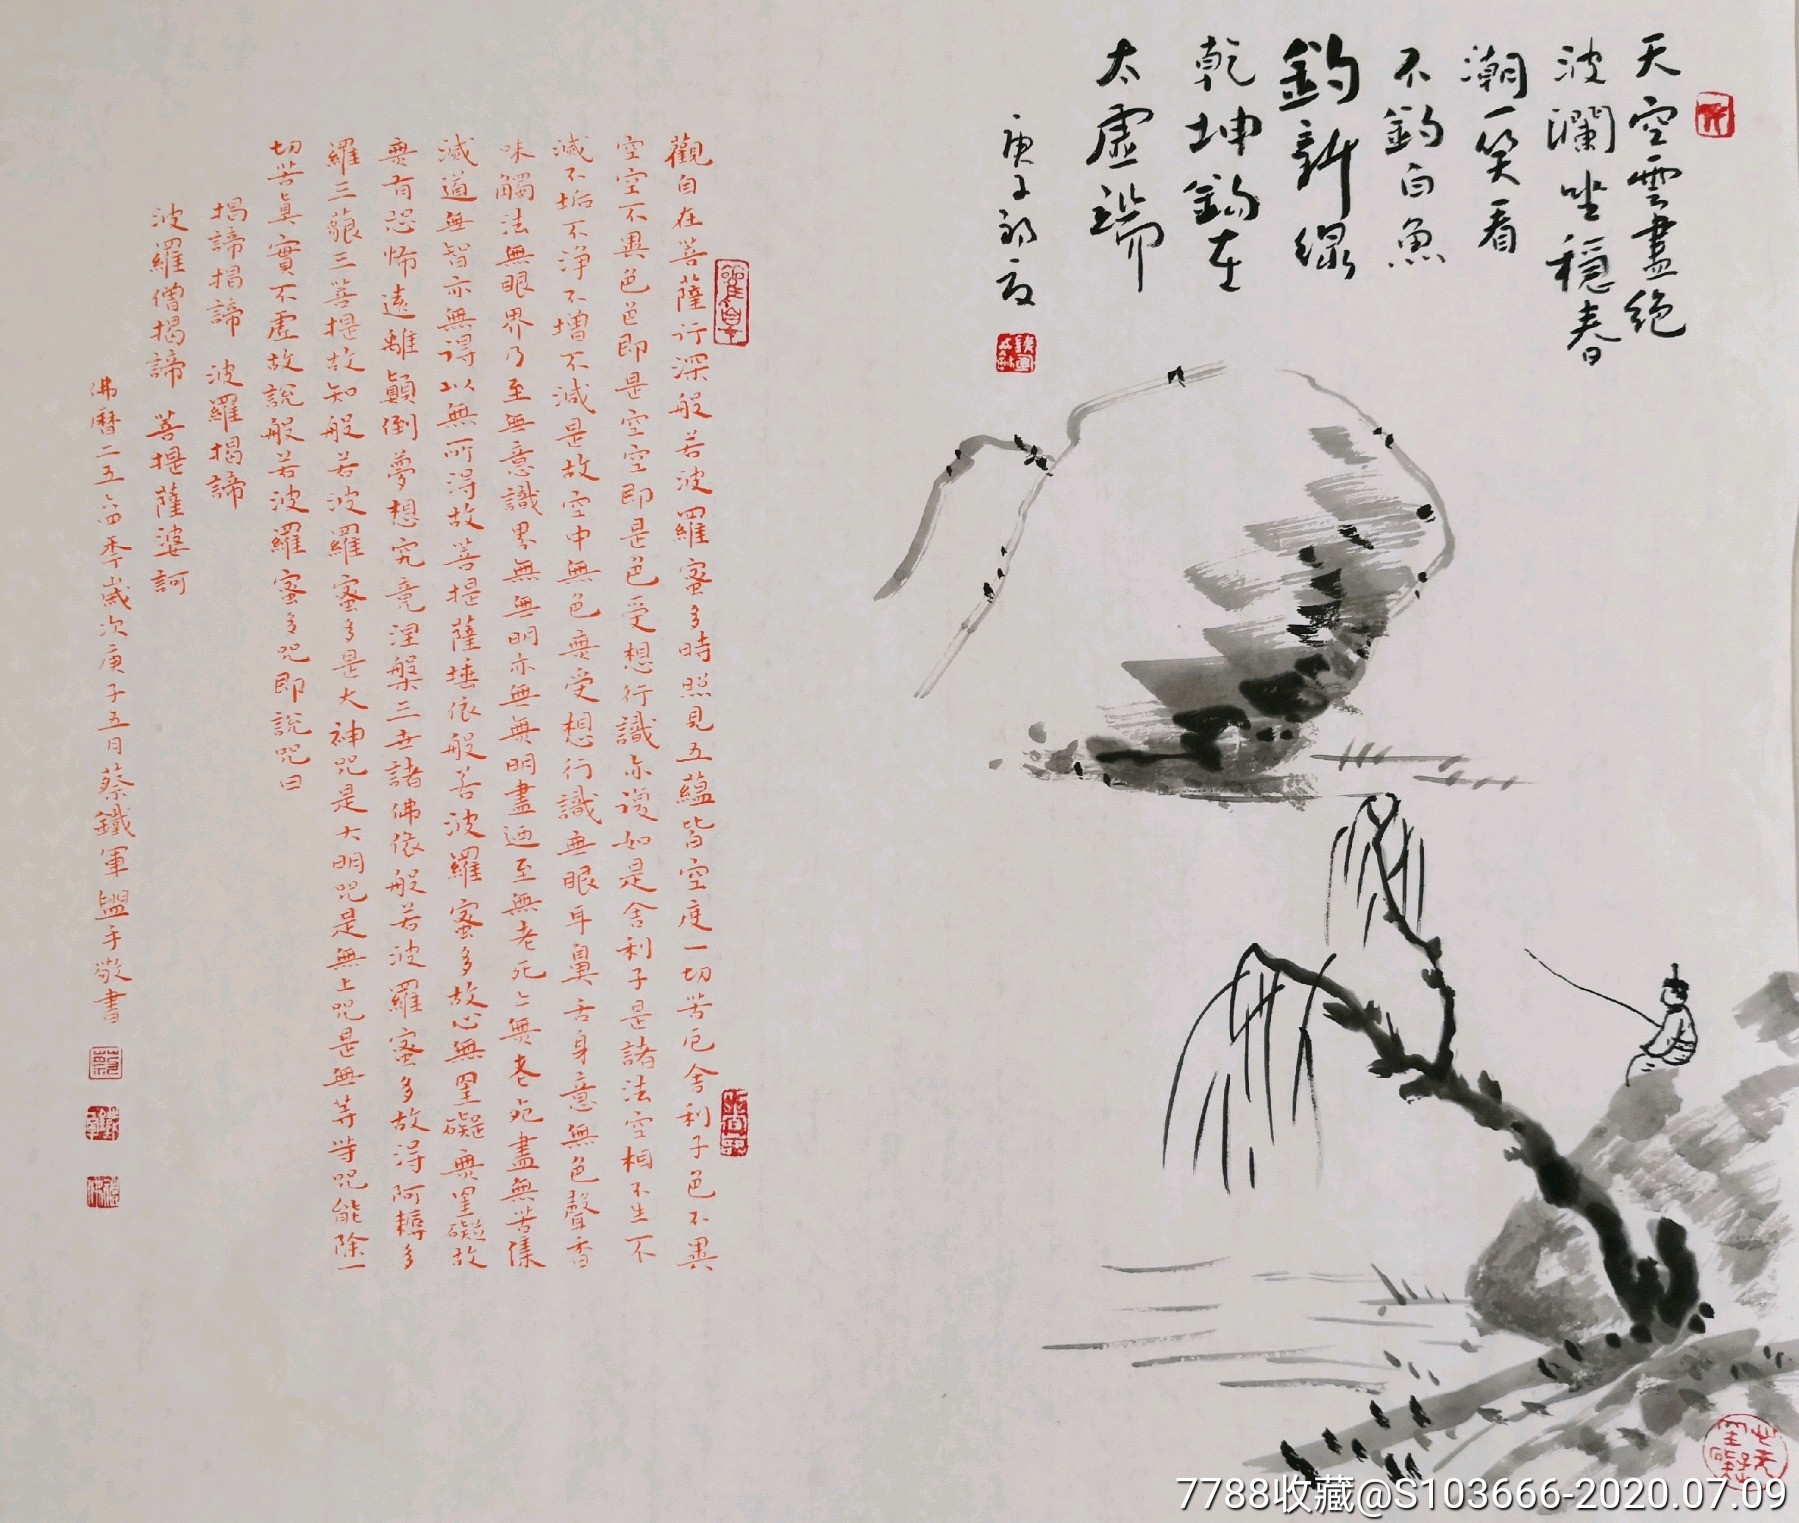 天空雲盡絕
波瀾坐穩春
潮一笑看
不釣白魚
釣新綠
乾坤釣在
太虛端
庚子初夏
觀自在菩薩行深般若波羅蜜多時照見五蘊皆空度一切苦厄舍利子色不異
空空不異色色即是空空即是色受想行識亦復如是舍利子是諸法空相不生不
滅不垢不淨不增不減是故空中無色無受想行識無眼耳鼻舌身意無色聲香
味觸法無眼界乃至無意識界無無明亦無無明盡迺至無老死亦無老死盡無苦集
滅道無智亦無得以無所得故菩提薩埵依般若波羅蜜多故心無罣礙無罣礙故
無有恐怖遠離顛倒夢想究竟涅槃三世諸佛依般若波羅蜜多故得阿耨多
羅三藐三菩提故知般若波羅蜜多是大神咒是大明咒是無上咒是無等等咒能除一
切苦真實不虛故說般若波羅蜜多咒即說咒曰
揭諦揭諦 波羅揭諦
波羅僧揭諦 菩提薩婆訶
佛曆二五六四季歲次庚子五月蔡鐵軍盥手敬書
7788收藏@S103666-2020.07.09